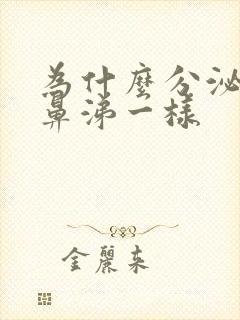 為什麼分泌
鼻涕一樣
金麗来